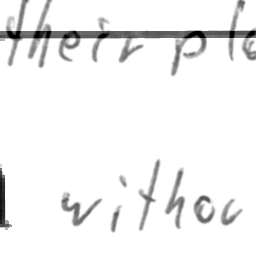 their pla
withou